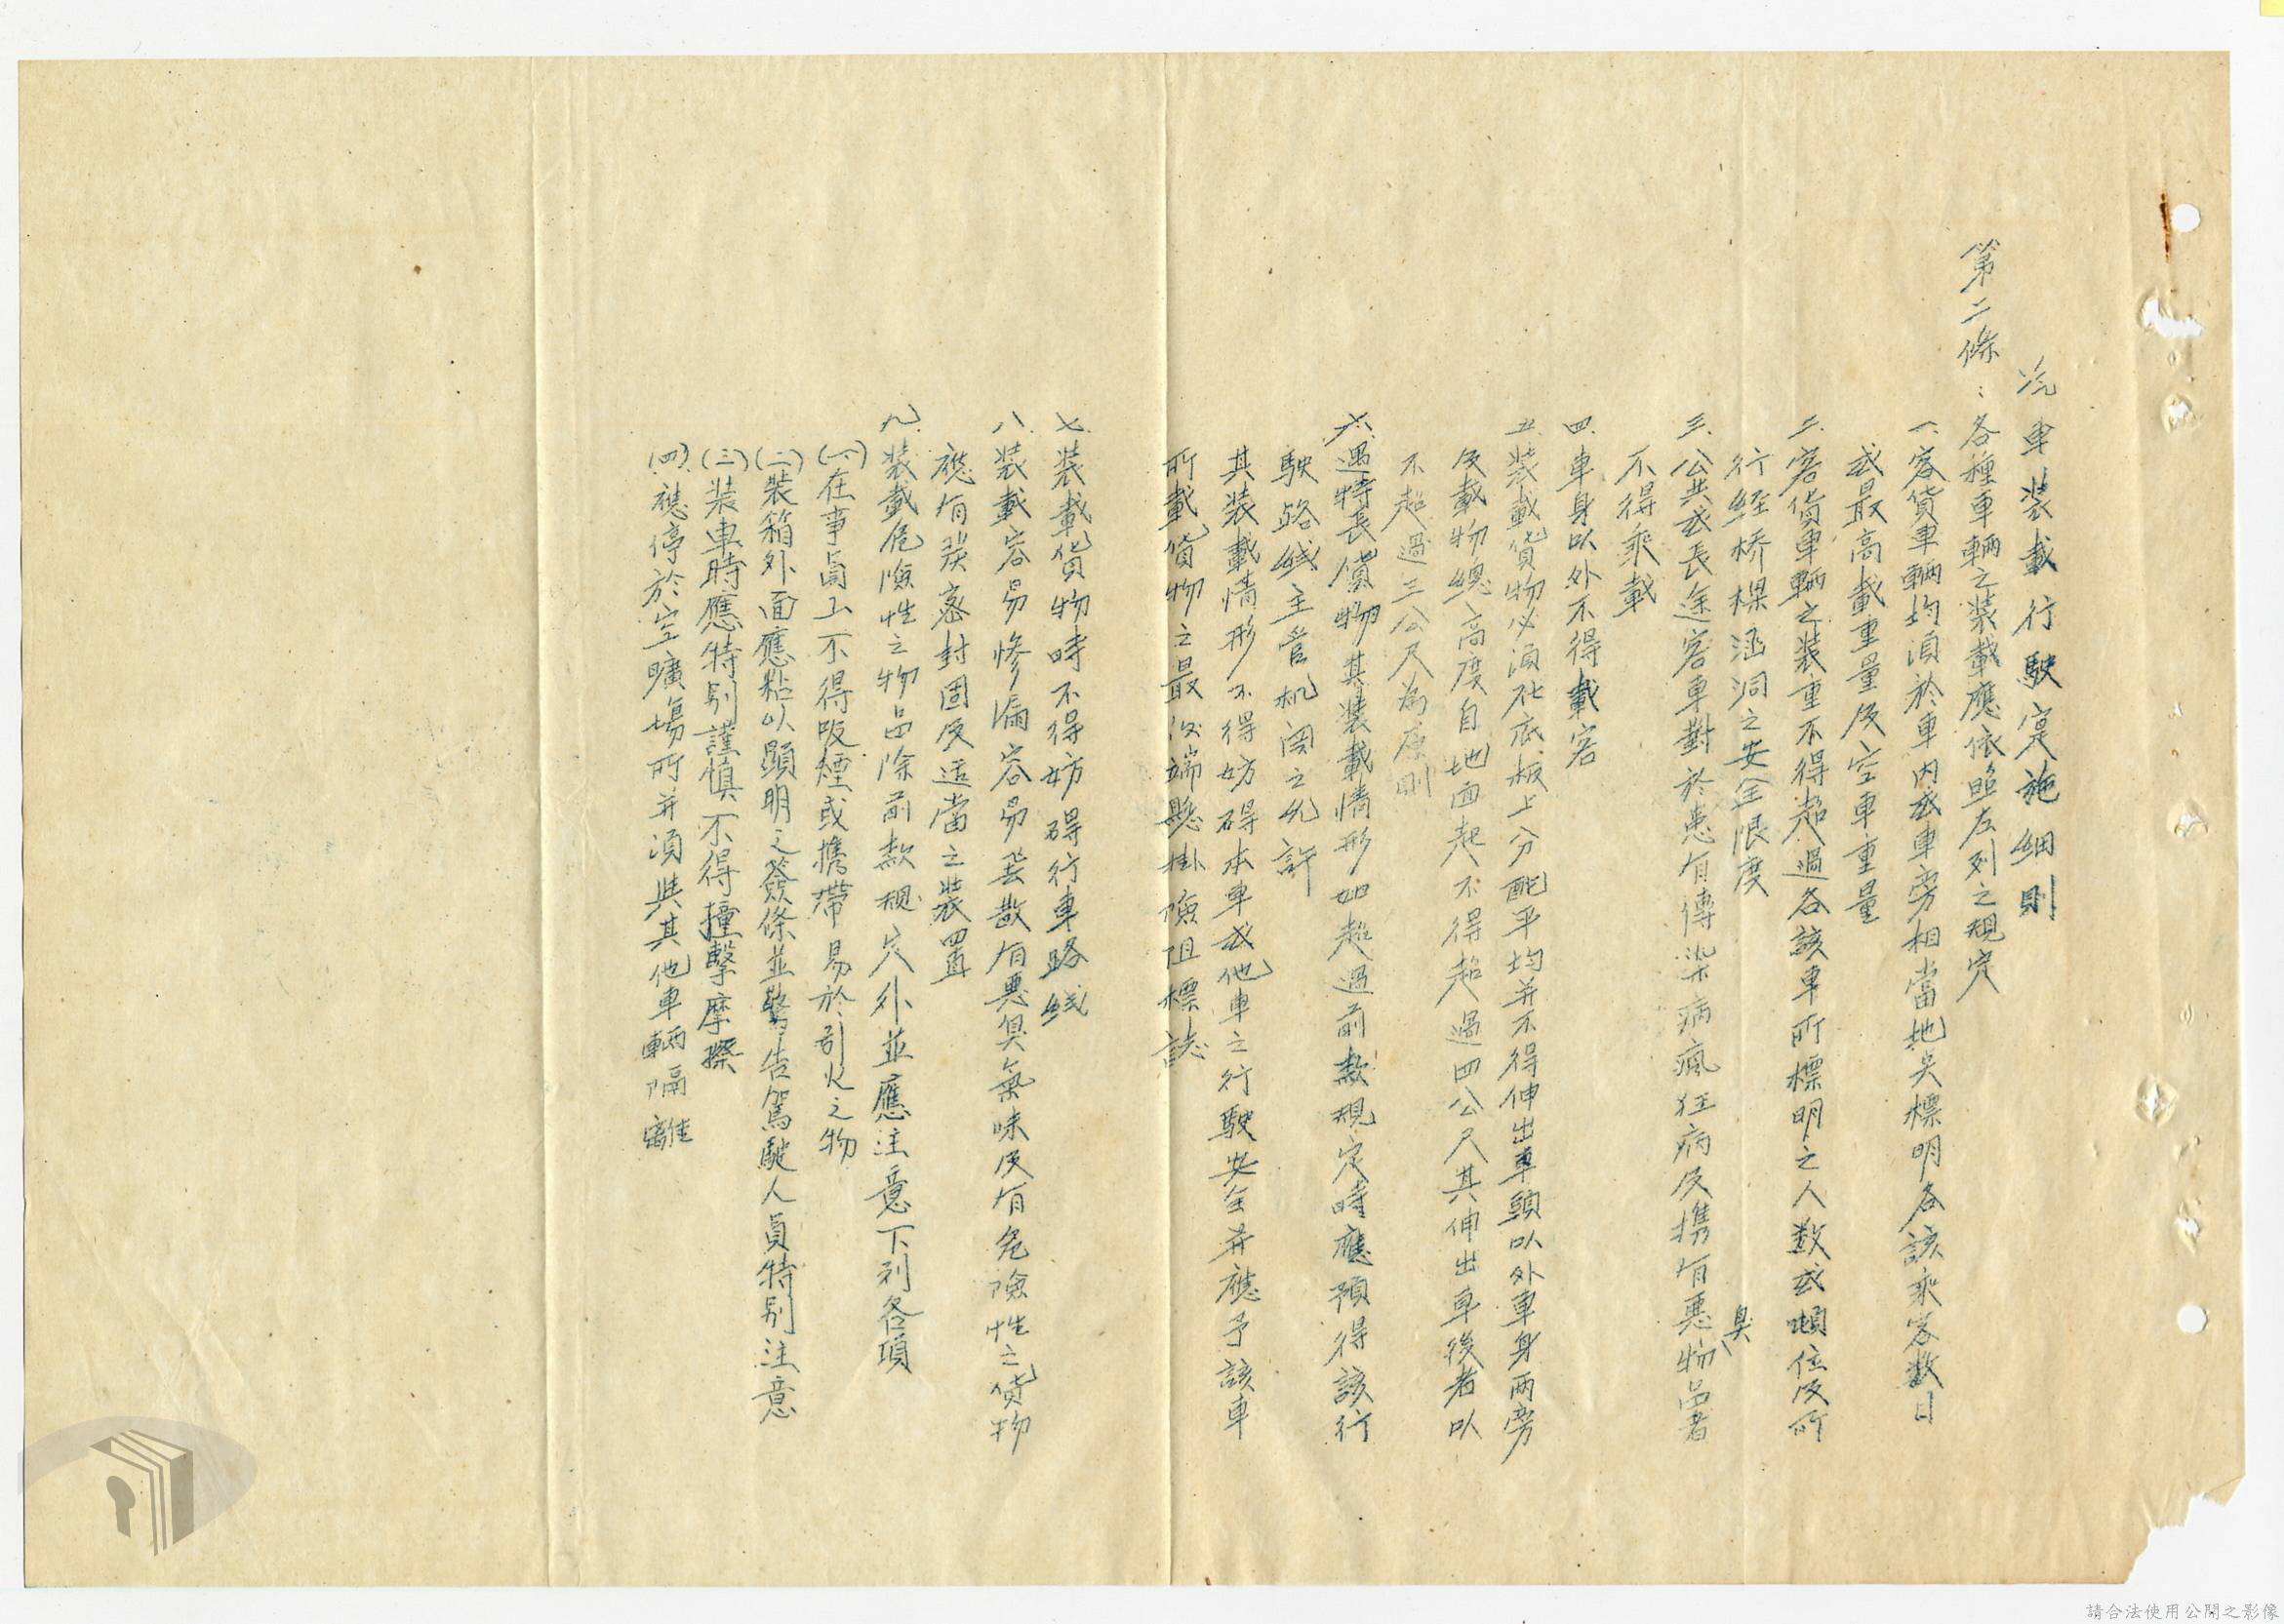 汽車装載行駛実施細則
第二條：各種車輛之装載應依照左列之規定
一、客貨車輛均須於車内或車旁相當地矣標明各該乘客数目
或最高載重量及空車重量
二、客貨車輛之装重不得超過各該車所標明之人数或噸位及所
行经桥樑涵洞之安全限度
三、公共或長途客車對於患有傳染病瘋狂病及携有悪臭物品者
不得乘載
四、車身以外不得載客
五、装載貨物必須在底板上分配平均并不得伸出車頭以外車身兩旁
及載物總高度自地面起不得超過四公尺其伸出車後者以
不超過三公尺為原則
六、遇特長貨物其装載情形如超過前款規定時應預得該行
駛路綫主管机関之允許
其装載情形不得妨碍本車或他車之行駛安全并應予該車
所載貨物之最後端懸掛險阻標誌
七、装載貨物時不得妨碍行車路綫
八、装載容易滲漏容易飛散有悪臭氣味及有危險性之貨物
應有嚴密封固及适當之裝置
九、裝載危險性之物品除前款規定外並應注意下列各項
(一)在事員工不得吸煙或攜帶易於引火之物
(二)裝箱外面應黏以顯明之簽條並警告駕駛人員特别注意
(三)装車時應特别謹慎不得撞擊摩擦
(四)應停於空曠場所并須與其他車輛隔離
請合法使用公開之影像